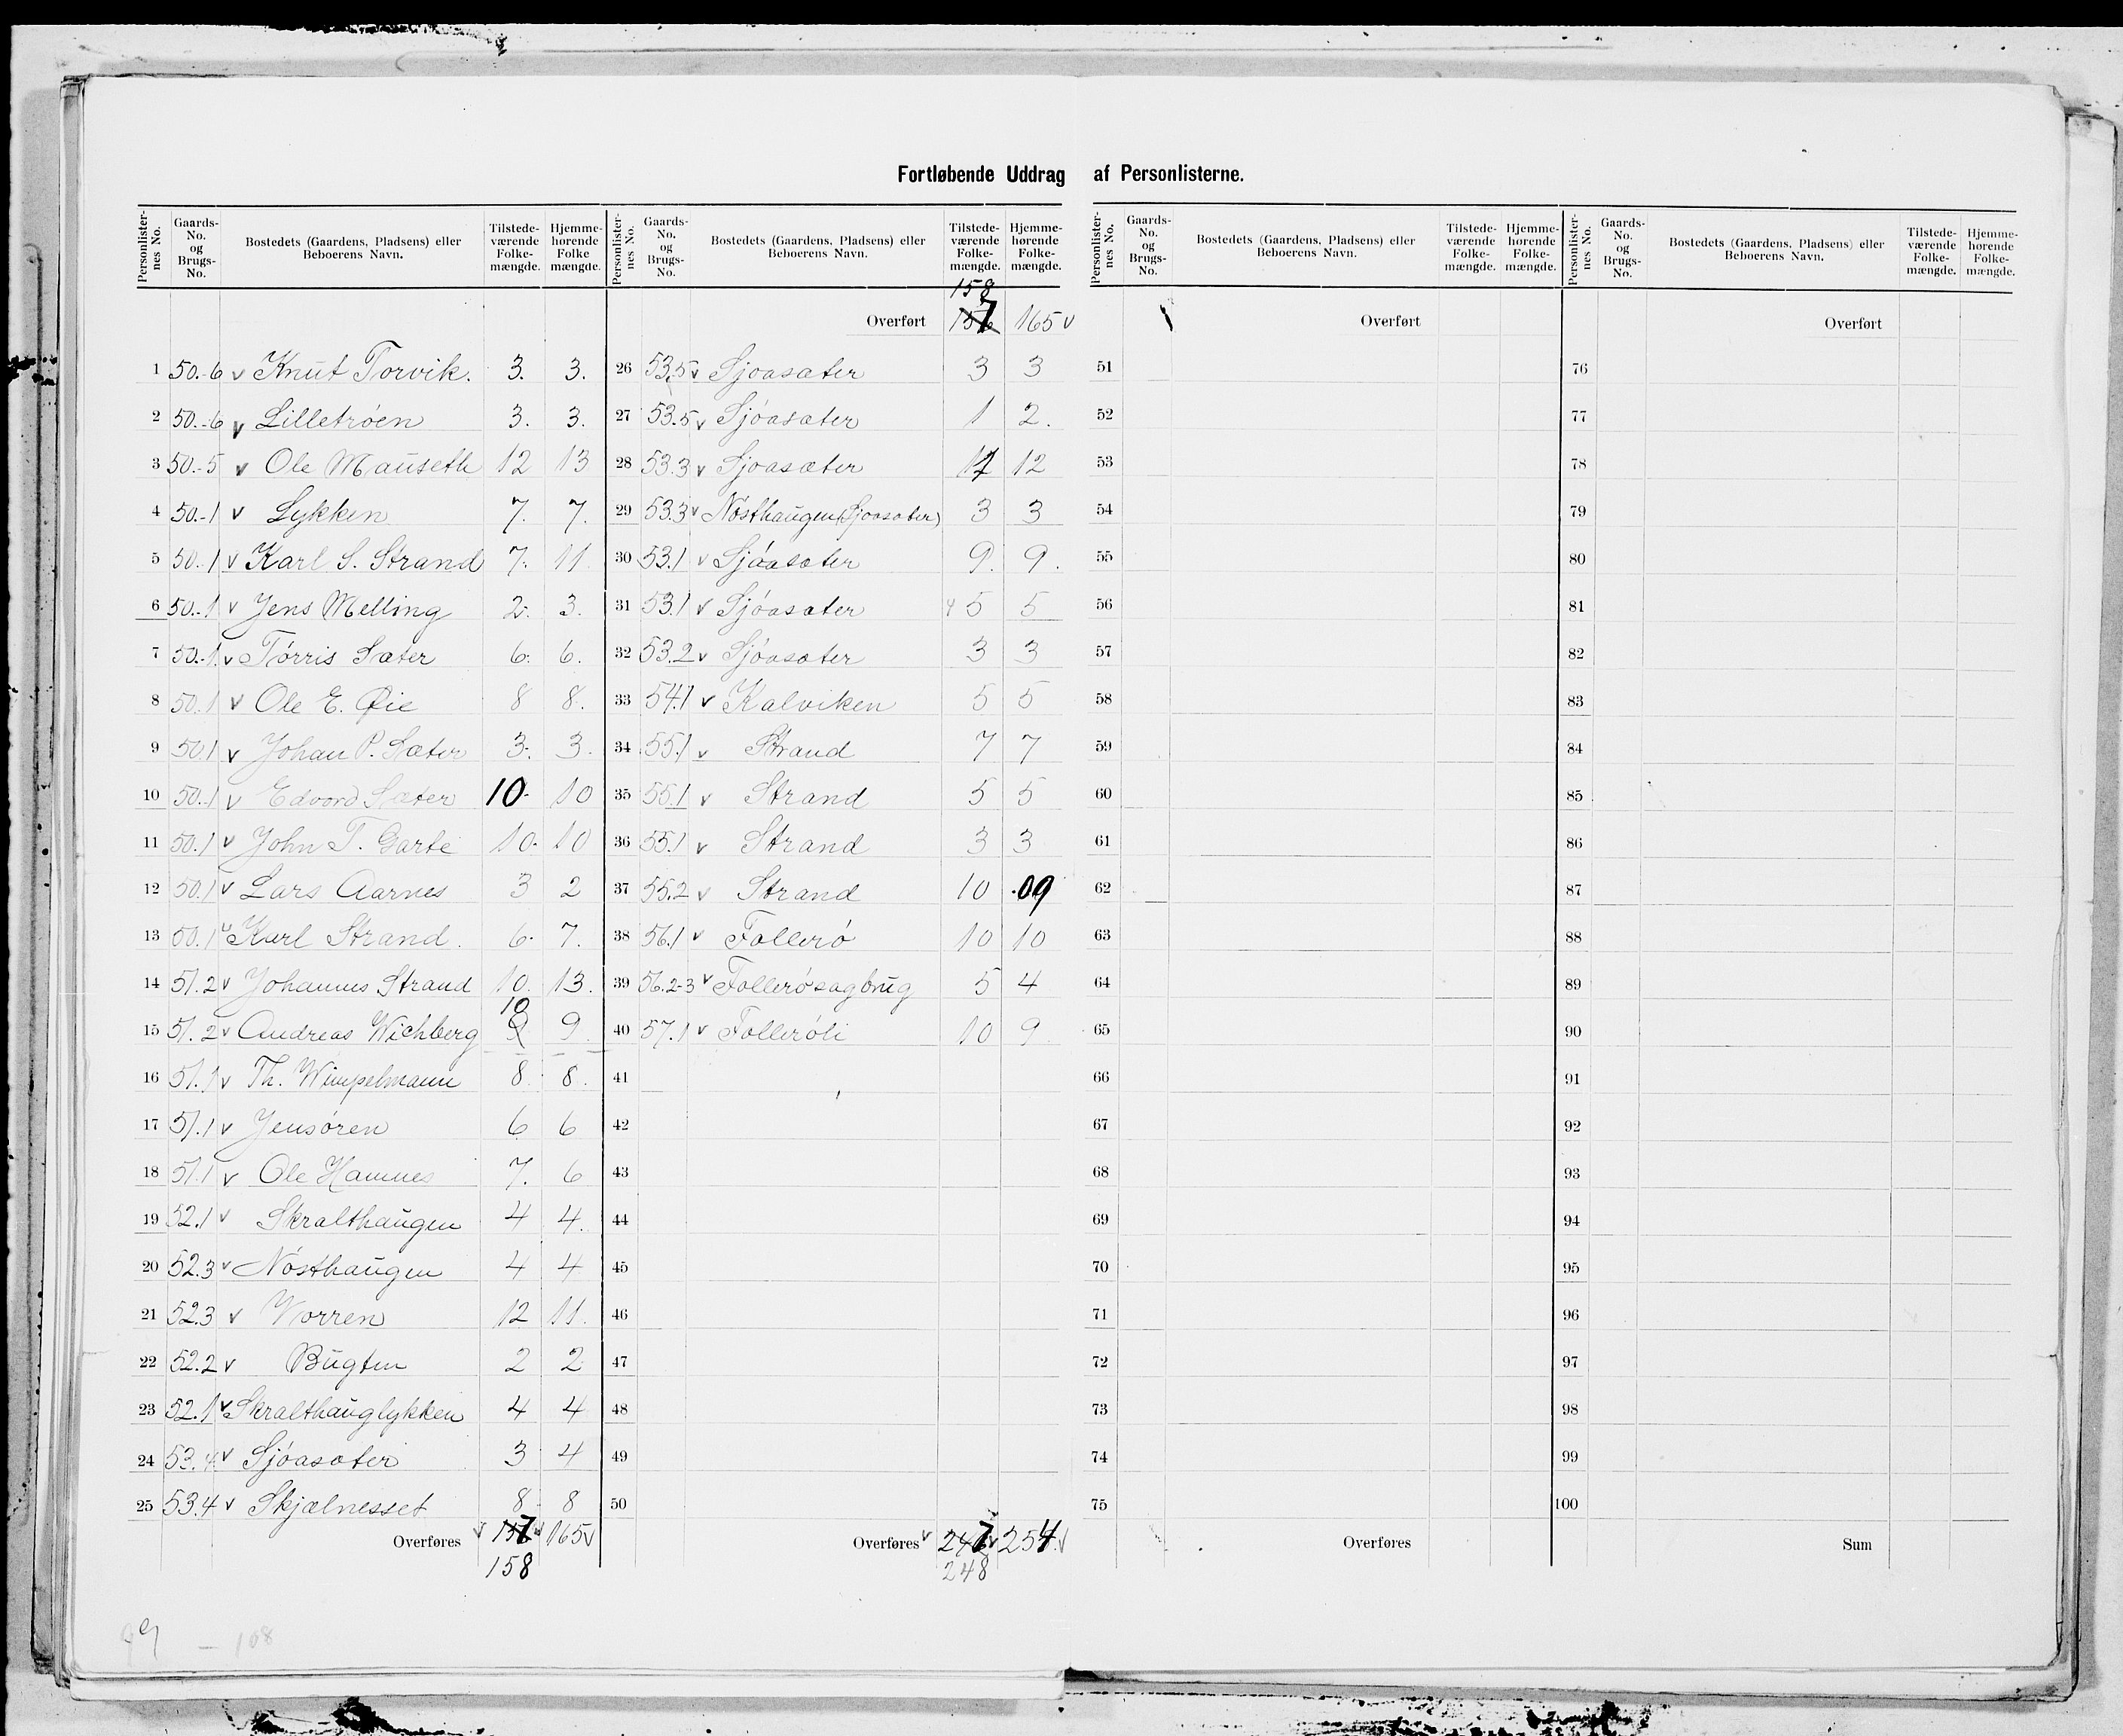 Fortløbende Uddrag af Personlisterne.
Personlister-nes No. Gaards-No. og Brugs-No. Bostedets (Gaardens, Pladsens) eller Beboerens Navn. Tilstede-værende Folke-mængde. Hjemme-hørende Folke mængde.
1 50.-6 v Knut Torvik. 3. 3.
2 50.-6 v Lilletrøen 3. 3.
3 50.-5 v Ole Mauseth 12 13
4 50.-1 v Lykken 7. 7.
5 50.-1 v Karl S. Strand 7. 11.
6 50.-1 v Jens Melling 2. 3.
7 50.-1. v Tørris Sæter 6. 6.
8 50.1 v Ole E. Øie 8 8.
9 50.1 v Johan P. Sæter 3. 3.
10 50.1 v Edvard Sæter 10. 10
11 50.1 v John T. Garte 10. 10
12 50.1 v Lars Aarnes 3 2
13 50.1 v Karl Strand. 6. 7.
14 51.2 v Johannes Strand 10. 13.
15 51.2 v Andreas Wichberg 10 9
16 51.1 v Th. Wimpelmann 8. 8.
17 51.1 v Jensøren 6 6
18 51.1 v Ole Hamnes 7. 6
19 52.1 v Skralthaugen 4 4.
20 52.3 v Nøsthaugen 4 4
21 52.3 v Vorren 12 11.
22 52.2 v Bugten 2 2
23 52.1 v Skralthauglykken 4 4
24 53.4 v Sjøasæter 3 4
25 53.4 v Skjælnesset 8 8
Overføres v 157 v 165 v
158
Personlister-nes No. Gaards-No. og Brugs-No. Bostedets (Gaardens, Pladsens) eller Beboerens Navn. Tilstede-værende Folke-mængde. Hjemme-hørende Folke-mængde.
158
Overført 157 165 v
26 53.5 v Sjøasæter 3 3
27 53.5 v Sjøasæter 1 2.
28 53.3 v Sjøasæter 12
29 53.3 v Nøsthaugen (Sjøasæter) 3 3
30 53.1 v Sjøasæter 9. 9.
31 53.1 v Sjøasæter 5 5
32 53.2 v Sjøasæter 3 3
33 54.1 v Kalviken 5 5
34 55.1 v Strand 7 7
35 55.1 v Strand 5 5
36 55.1 v Strand 3 3
37 55.2 v Strand 10 09
38 56.1 v Follerø 10 10
39 56.2-3 v Follerøsagbrug 5 4
40 57.1 v Follerøli 10 9
41
42
43
44
45
46
47
48
49
50
Overføres v 247 v 254. v
248
Personlister-nes No. Gaards-No. og Brugs-No. Bostedets (Gaardens, Pladsens) eller Beboerens Navn. Tilstede-værende Folke-mængde. Hjemme-hørende Folke-mængde.
Overført
51
52
53
54
55
56
57
58
59
60
61
62
63
64
65
66
67
68
69
70
71
72
73
74
75
Overføres
Personlister-nes No. Gaards-No. og Brugs-No. Bostedets (Gaardens, Pladsens) eller Beboerens Navn. Tilstede-værende Folke-mængde. Hjemme-hørende Folke-mængde.
Overført
76
77
78
79
80
81
82
83
84
85
86
87
88
89
90
91
92
93
94
95
96
97
98
99
100
Sum
99 — 108